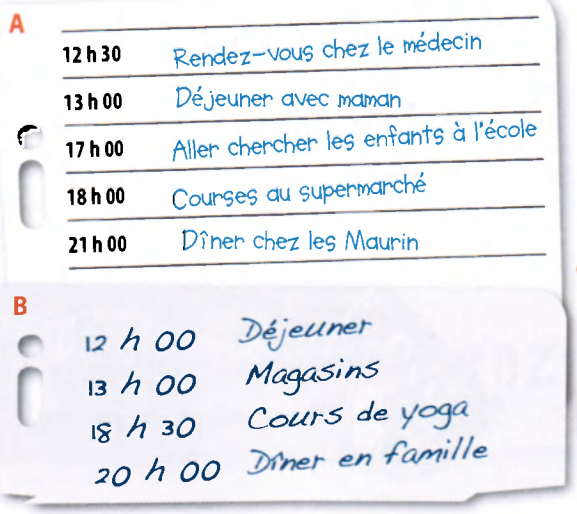 A
12 h 30 Rendez-vous chez le médecin
13 h 00 Déjeuner avec maman
17 h 00 Aller chercher les enfants à l'école
18 h 00 Courses au supermarché
21 h 00 Dîner chez les Maurin
B
12 h 00 Déjeuner
13 h 00 Magasins
18 h 30 Cours de yoga
20 h 00 Dîner en famille